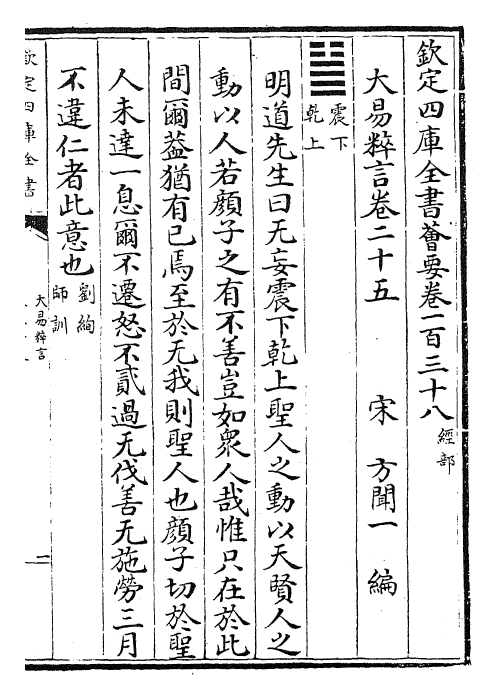 欽定四庫全書薈要卷一百三十八經部
大易粹言卷二十五 宋 方聞一 編
震下
乾上
明道先生曰无妄震下乾上聖人之動以天賢人之
動以人若顔子之有不善豈如衆人哉惟只在於此
間爾葢猶有已焉至於无我則聖人也顔子切於聖
人未達一息爾不遷怒不貳過无伐善无施勞三月
不違仁者此意也劉絢
師訓
欽定四庫全書
大易粹言
一